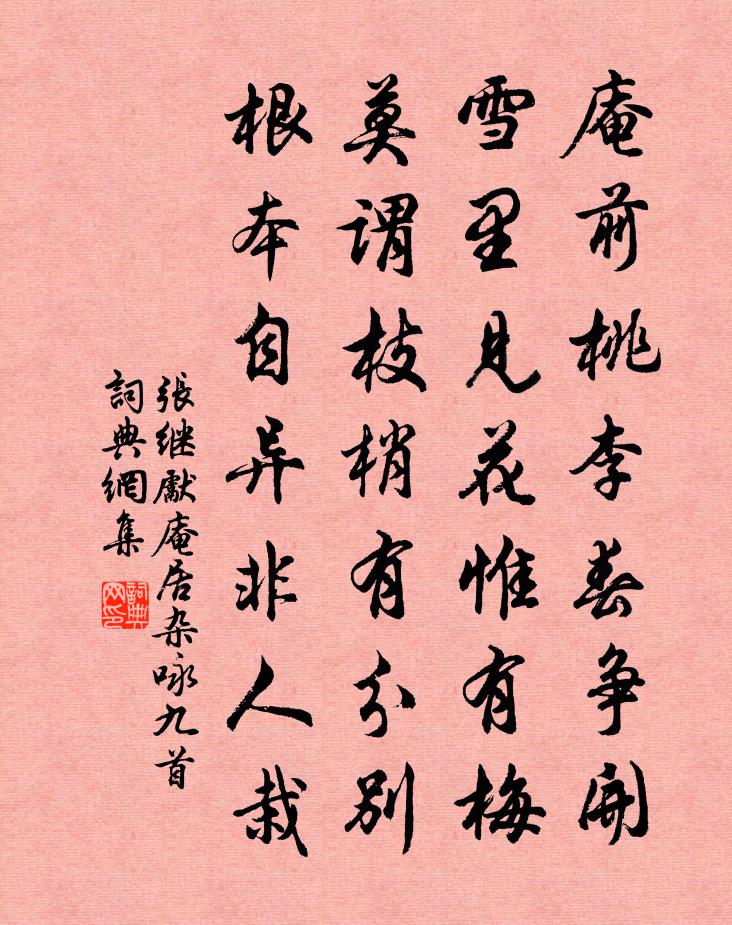 庵前桃李春争開
雪里見花惟有梅
莫謂枝梢有分别
根本自异非人栽
張继獻庵居杂咏九首
詞典網集
詞典网印